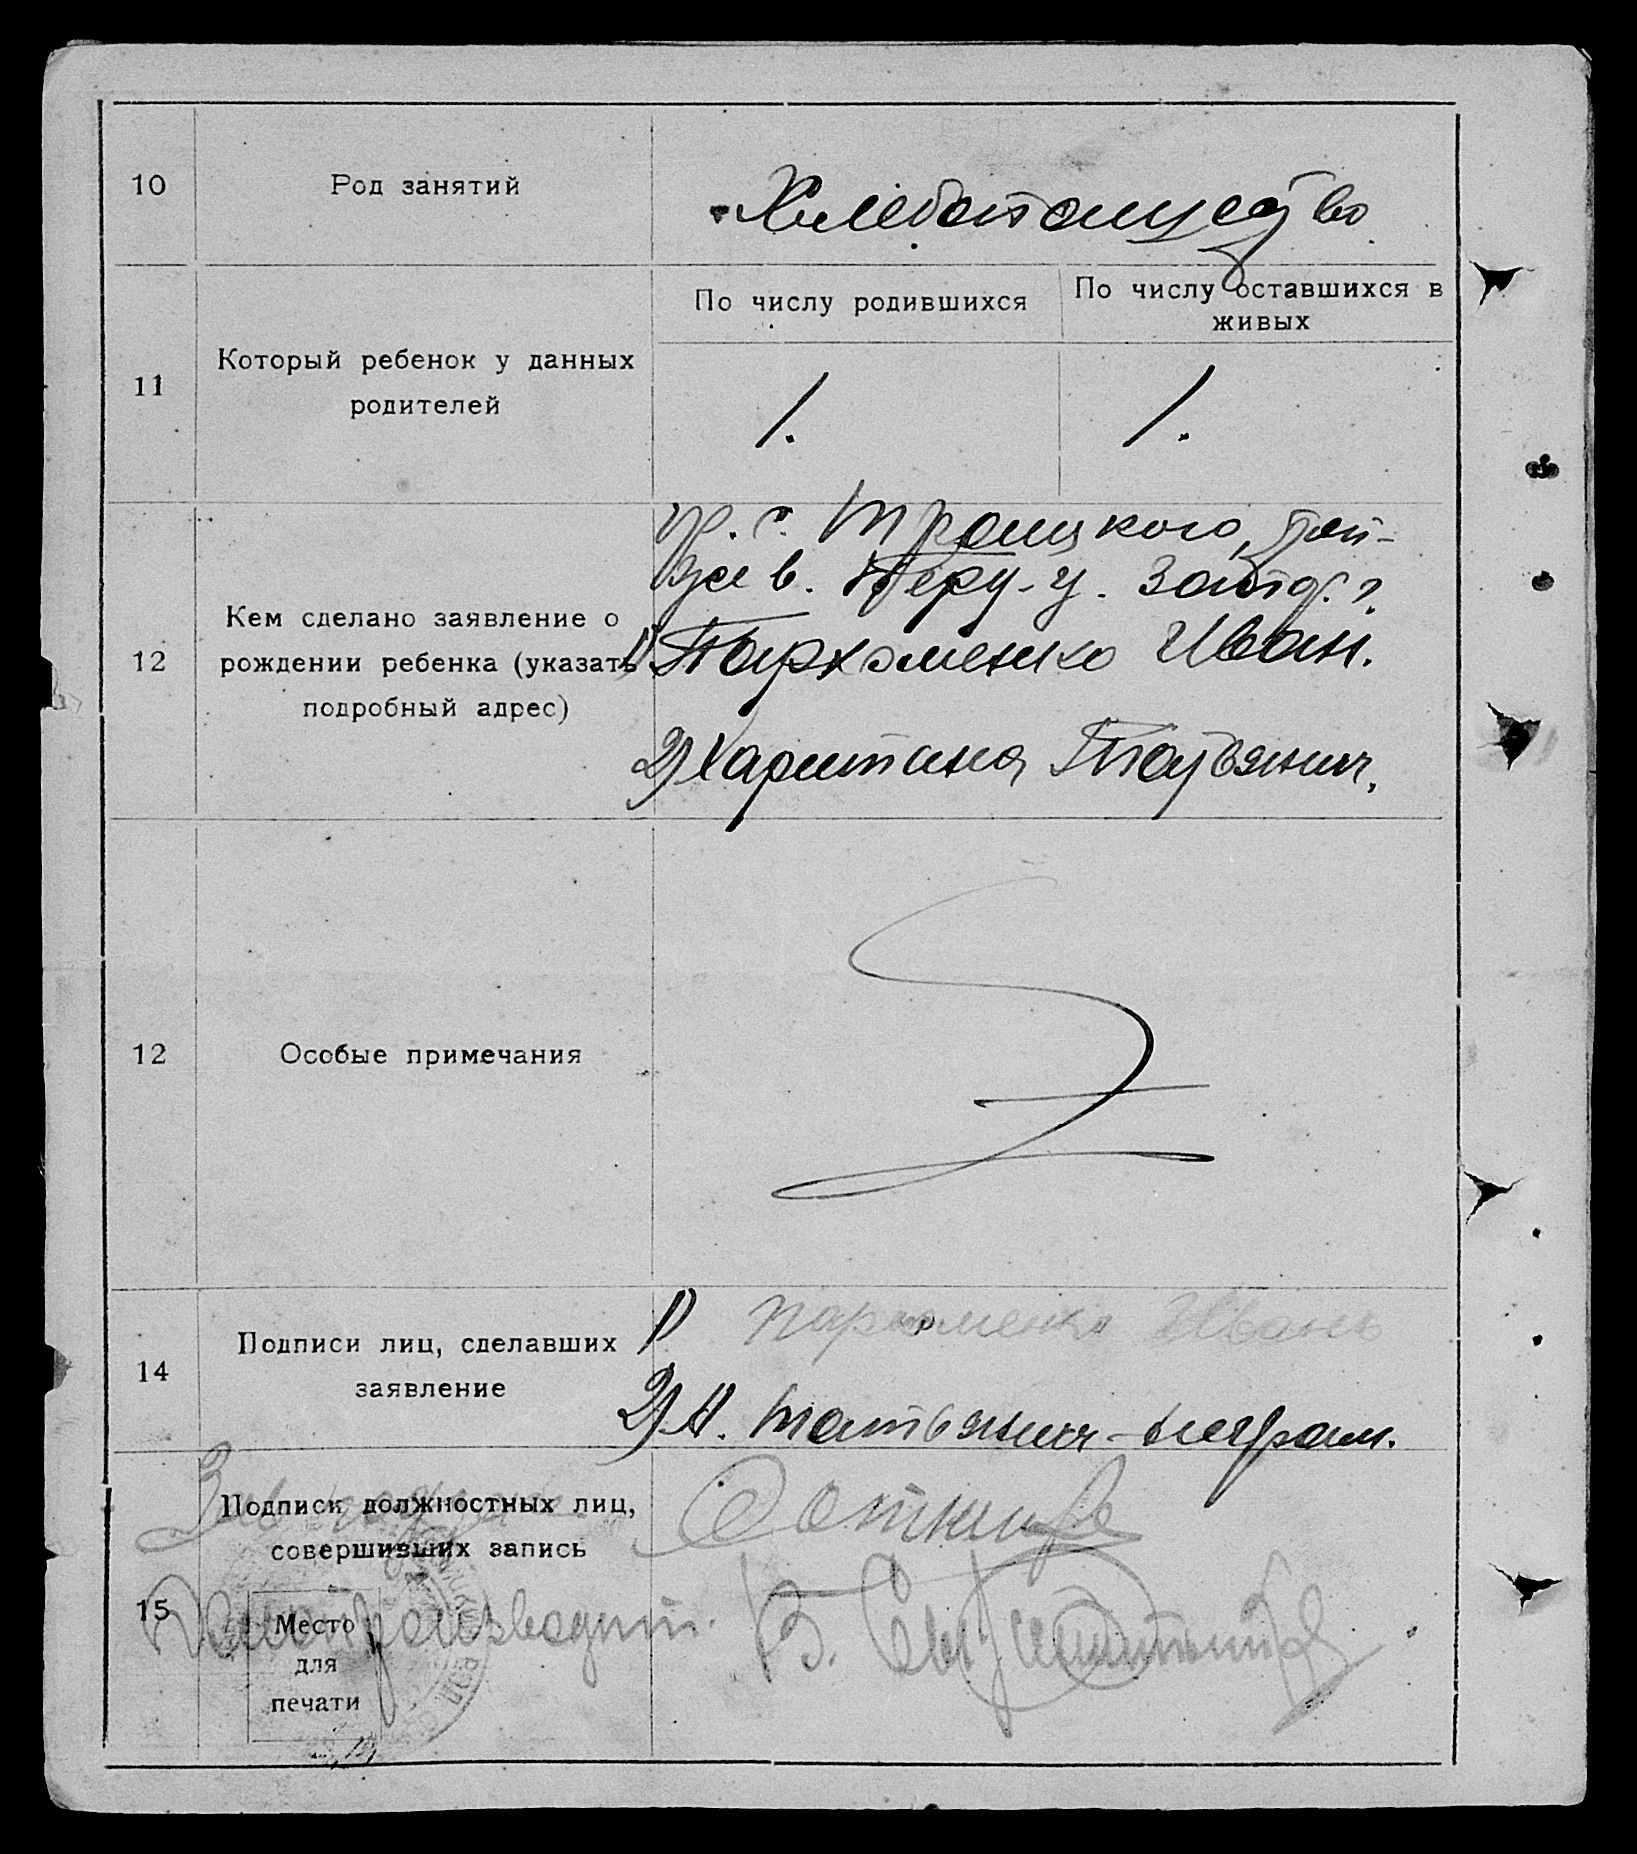 10
Род занятий
Хлебопашество
11
Который ребенок у данных
родителей
По числу родившихся
По числу оставшихся в
живых
1.
1.
12
Кем сделано заявление о
рождении ребенка (указать
подробный адрес)
гр. с. Троицкого,
1) Пархоменко Иван.
2) Харитина Татьянич,
12
Особые примечания
14
Подписи лиц, сделавших
заявление
1) Пархоменко Иванъ
2) Х. Татьянич - неграм.
15
Подписи должностных лиц,
совершивших запись
Место
для
печати
Зав
Делопроизводит.